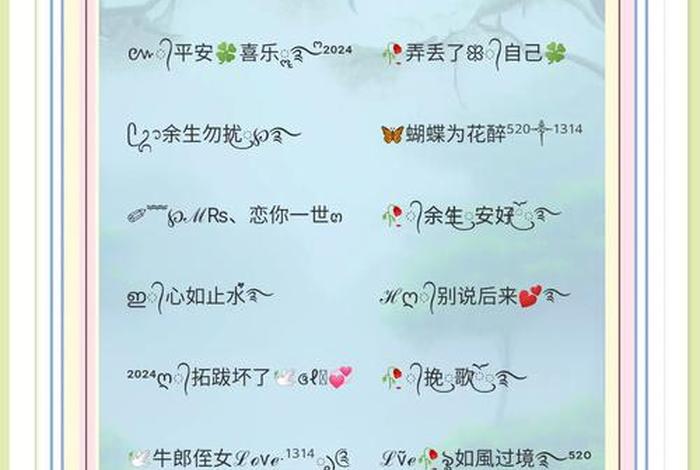 平安🍀喜乐²⁰²⁴
🥀弄丢了ꕥ自己🍀
余生勿扰
🦋蝴蝶为花醉⁵²⁰⸸¹³¹⁴
℘ℳRs、恋你一世
🥀余生安好
ഇ心如止水
ℋღ别说后来💕
²⁰²⁴ღ拓跋坏了🕊💞
🥀挽歌
🕊牛郎侄女ℒℴѵℯ·¹³¹⁴
ℒṽℯ🥀如風过境⁵²⁰